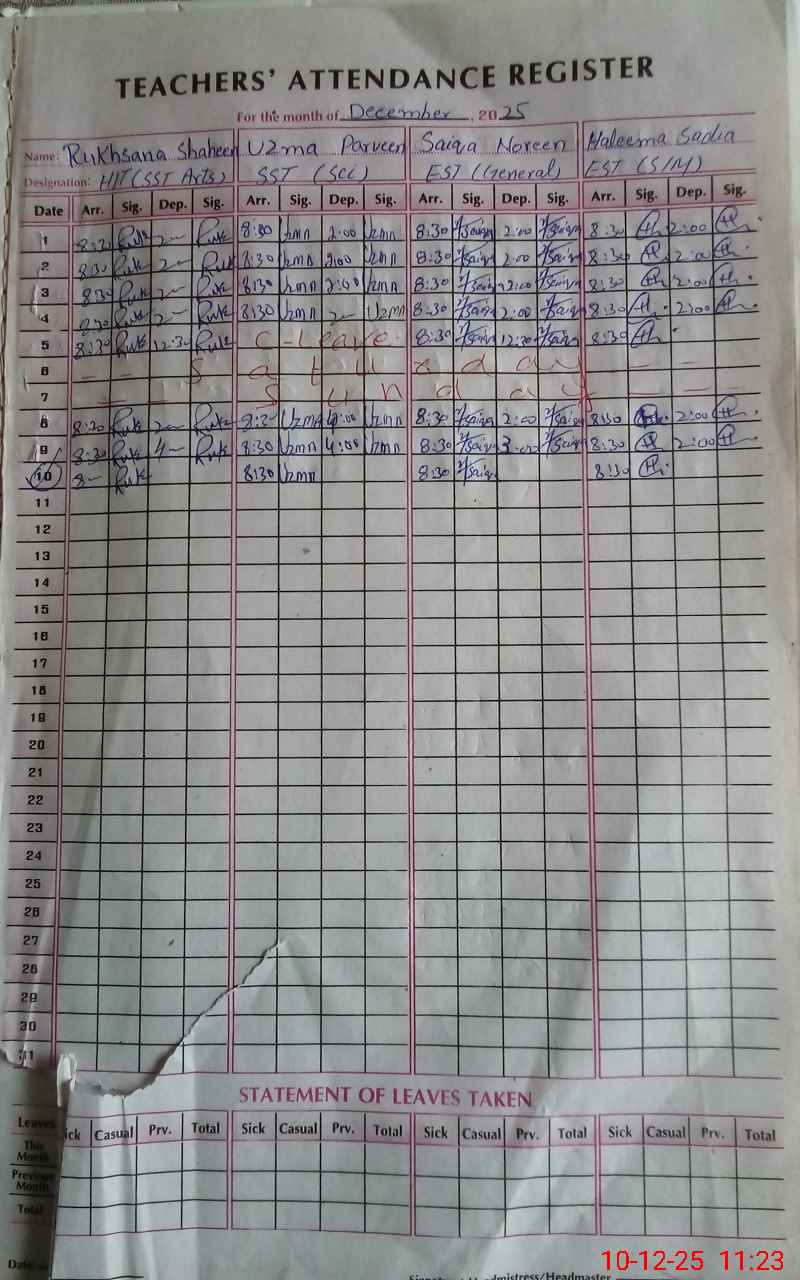 TEACHERS' ATTENDANCE REGISTER
For the month of December, 2025
Name: Rukhsana Shaheen Uzma Parveen Saiqa Noreen Haleema Sadia
Designation: HIT (SST Arts) SST (Sci) EST (General) EST (S/M)
Date Arr. Sig. Dep. Sig. Arr. Sig. Dep. Sig. Arr. Sig. Dep. Sig. Arr. Sig. Dep. Sig.
1 8:30 Ruk 2- Ruk 8:30 Uzma 2:00 Uzma 8:30 Saiqa 2:00 Saiqa 8:30 2:00
2 8:30 Ruk 2- Ruk 8:30 Uzma 2:00 Uzma 8:30 Saiqa 2:00 Saiqa 8:30 2:00
3 8:30 Ruk 2- Ruk 8:30 Uzma 2:00 Uzma 8:30 Saiqa 2:00 Saiqa 8:30 2:00
4 8:30 Ruk 2- Ruk 8:30 Uzma 2- Uzma 8:30 Saiqa 2:00 Saiqa 8:30 2:00
5 8:30 Ruk 12:30 Ruk C-Leave 8:30 Saiqa 12:30 Saiqa 8:30
6 - - S a t u r d a y - - -
7 - - S u n d a y - - -
8 8:30 Ruk 2- Ruk 8:30 Uzma Uzma 8:30 Saiqa 2:00 Saiqa 8:30 2:00
9 8:30 Ruk 4- Ruk 8:30 Uzma 4:00 Uzma 8:30 Saiqa 3:00 Saiqa 8:30 2:00
10 8- Ruk 8:30 Uzma 8:30 Saiqa 8:30
11
12
13
14
15
16
17
18
19
20
21
22
23
24
25
26
27
28
29
30
31
STATEMENT OF LEAVES TAKEN
Leaves Sick Casual Prv. Total Sick Casual Prv. Total Sick Casual Prv. Total Sick Casual Prv. Total
This Month
Previous Month
Total
Date
Headmistress/Headmaster
10-12-25 11:23